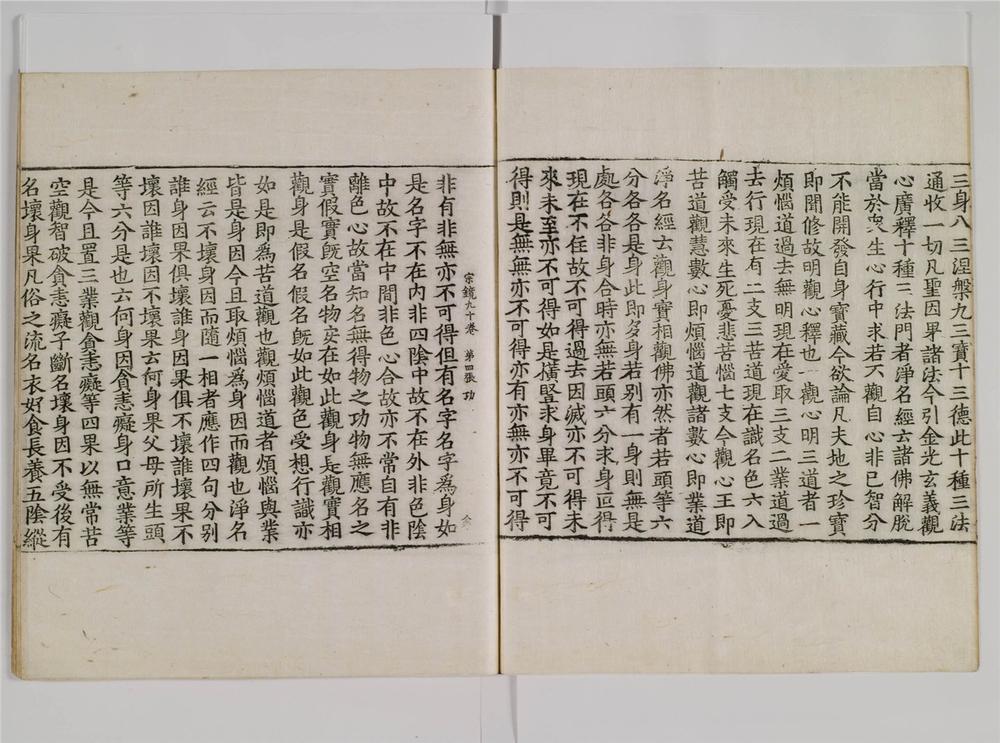 三身八三涅槃九三寶十三德此十種三法
通收一切凡聖因果諸法今引金光玄義觀
心廣釋十種三法門者淨名經云諸佛解脫
當於衆生心行中求若不觀自心非己智分
不能開發自身寶藏今欲論凡夫地之珍寶
即聞修故明觀心釋也一觀心明三道者一
煩惱道過去無明現在愛取三支二業道過
去行現在有二支三苦道現在識名色六入
觸受未來生死憂悲苦惱七支今觀心王即
苦道觀慧數心即煩惱道觀諸數心即業道
淨名經云觀身實相觀佛亦然者若頭等六
分各各是身此即多身若別有一身則無是
處各各非身合時亦無若頭六分求身叵得
現在不住故不可得過去因滅亦不可得未
來未至亦不可得如是橫竪求身畢竟不可
得則是無無亦不可得亦有亦無亦不可得
宗鏡九十卷 第四張 功
非有非無亦不可得但有名字名字為身如
是名字不在內非四陰中故不在外非色陰
中故不在中間非色心合故亦不常自有非
離色心故當知名無得物之功物無應名之
實假實旣空名物安在如此觀身是觀實相
觀身是假名假名旣如此觀色受想行識亦
如是即為苦道觀也觀煩惱道者煩惱與業
皆是身因今且取煩惱為身因而觀也淨名
經云不壞身因而隨一相者應作四句分別
誰身因果俱壞誰身因果俱不壞誰壞果不
壞因誰壞因不壞果云何身果父母所生頭
等六分是也云何身因貪恚癡身口意業等
是今且置三業觀貪恚癡等四果以無常苦
空觀智破貪恚癡子斷名壞身因不受後有
名壞身果凡俗之流名衣好食長養五陰縱